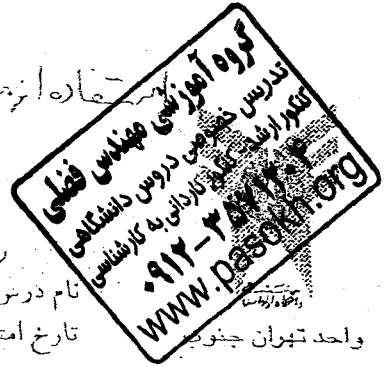 گروه آموزشی مهندس فضلی
تدریس خصوصی دروس دانشگاهی
کنکور ارشد، کنکور کاردانی به کارشناسی
۰۹۱۲-۳۵۷۱۳۰۴
www.pasokh.org
نام درس
تارخ امت
واحد تهران جنوب